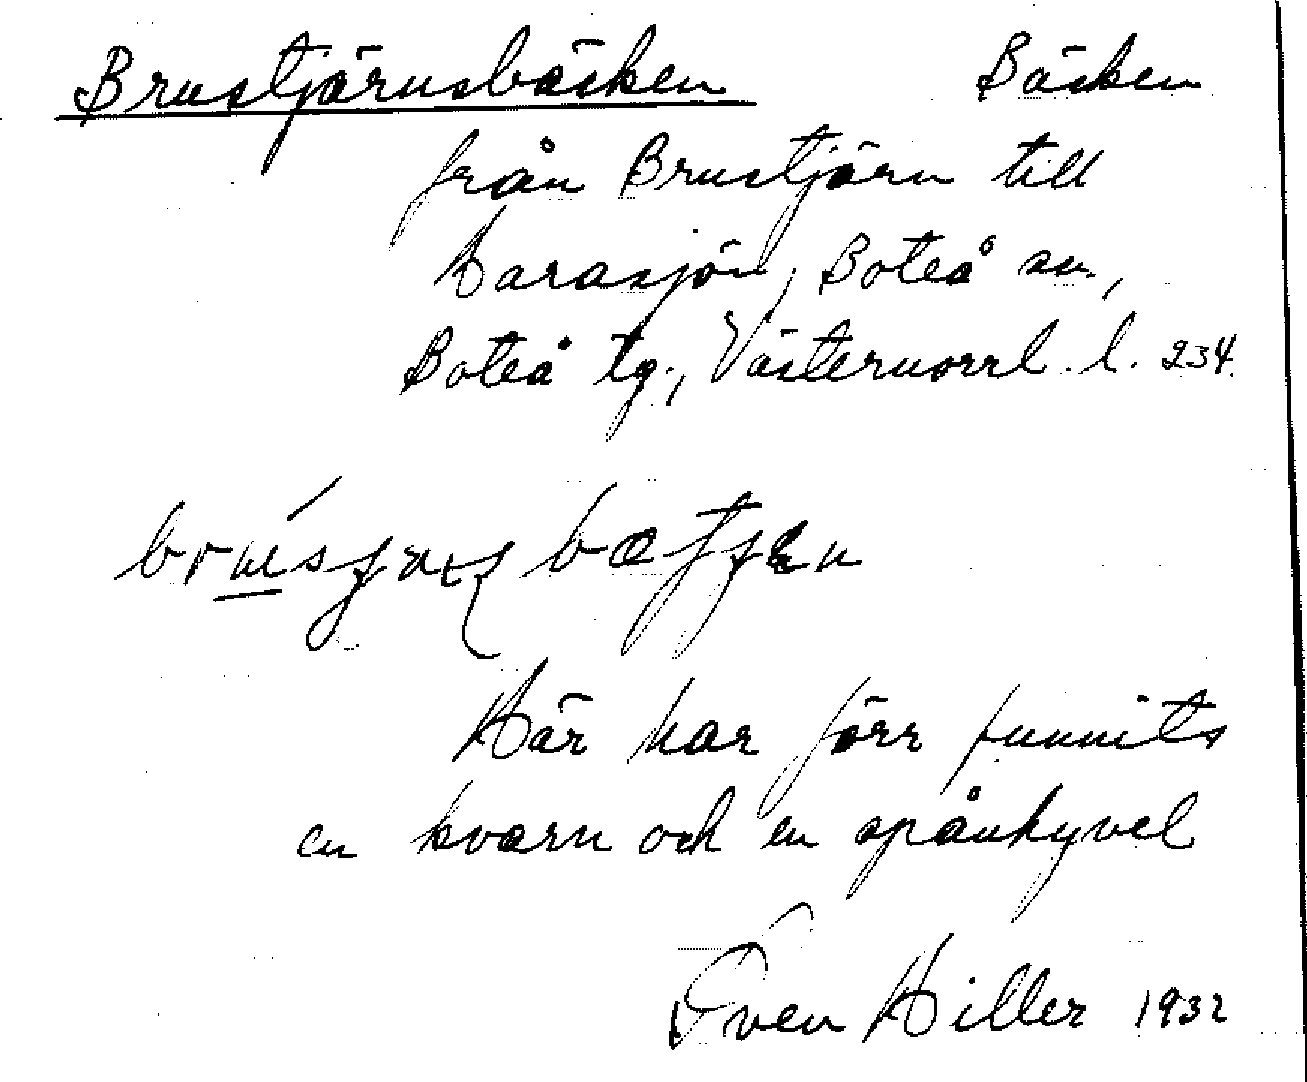 Brustjärnsbäcken Bäcken
från Brustjärn till
Harasjön, Boteå sn.,
Boteå tg., Västernorrl. l. 234.
Här har förr funnits
en kvarn och en spånhyvel
Sven Hiller 1932